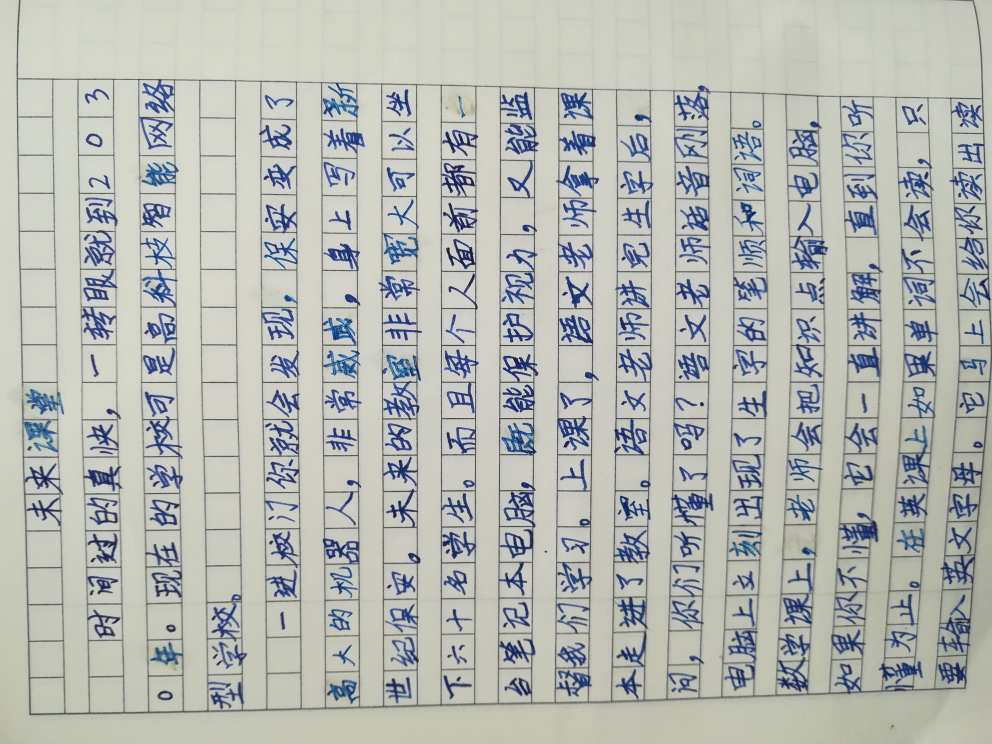 未来课堂
时间过的真快，一转眼就到203
0年。现在的学校可是高科技智能网络
型学校。
一进校门你就会发现，保安变成了
高大的机器人，非常威武，身上写着新
世纪保安。未来的教室非常宽大可以坐
下六十名学生。而且每个人面前都有一
台笔记本电脑，既能保护视力，又能监
督我们学习。上课了，语文老师拿着课
本走进了教室。语文老师讲完生字后，
问，你们听懂了吗？语文老师话音刚落，
电脑上立刻出现了生字的笔顺和词语。
数学课上，老师会把知识点输入电脑，
如果你不懂，它会一直讲解，直到你听
懂为上。在英课上如果单词不会读，只
要输入英文字母。它马上会给你读出读